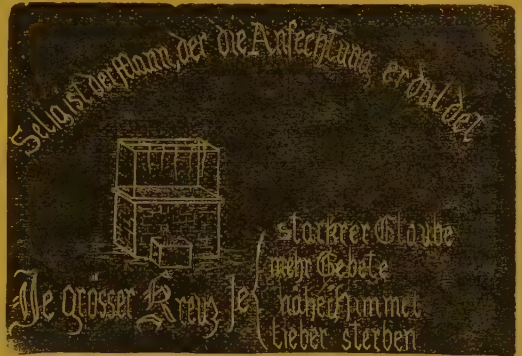 Selig ist der Mann, der die Anfechtung erduldet
Je grösser Kreuz je
starkrer Glaube
mehr Gebete
näher Himmel
lieber sterben